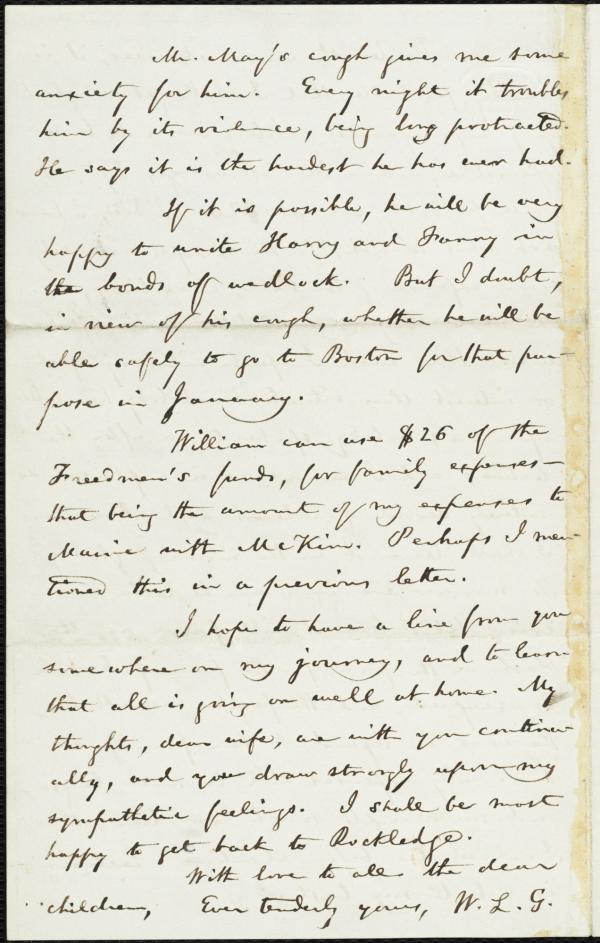 Mr. May's cough gives me some
anxiety for him. Every night it troubles
him by its violence, being long protracted.
He says it is the hardest he has ever had.
If it is possible, he will be very
happy to unite Harry and Fanny in
the bonds of wedlock. But I doubt,
in view of his cough, whether he will be
able safely to go to Boston for that pur-
pose in January.
William can use $26 of the
Freedmen's funds, for family expenses—
that being the amount of my expenses to
Maine with McKim. Perhaps I men-
tioned this in a previous letter.
I hope to have a line from you
somewhere on my journey, and to learn
that all is going on well at home. My
thoughts, dear wife, are with you continu-
ally, and you draw strongly upon my
sympathetic feelings. I shall be most
happy to get back to Rockledge.
With love to all the dear
children, Ever tenderly yours, W. L. G.